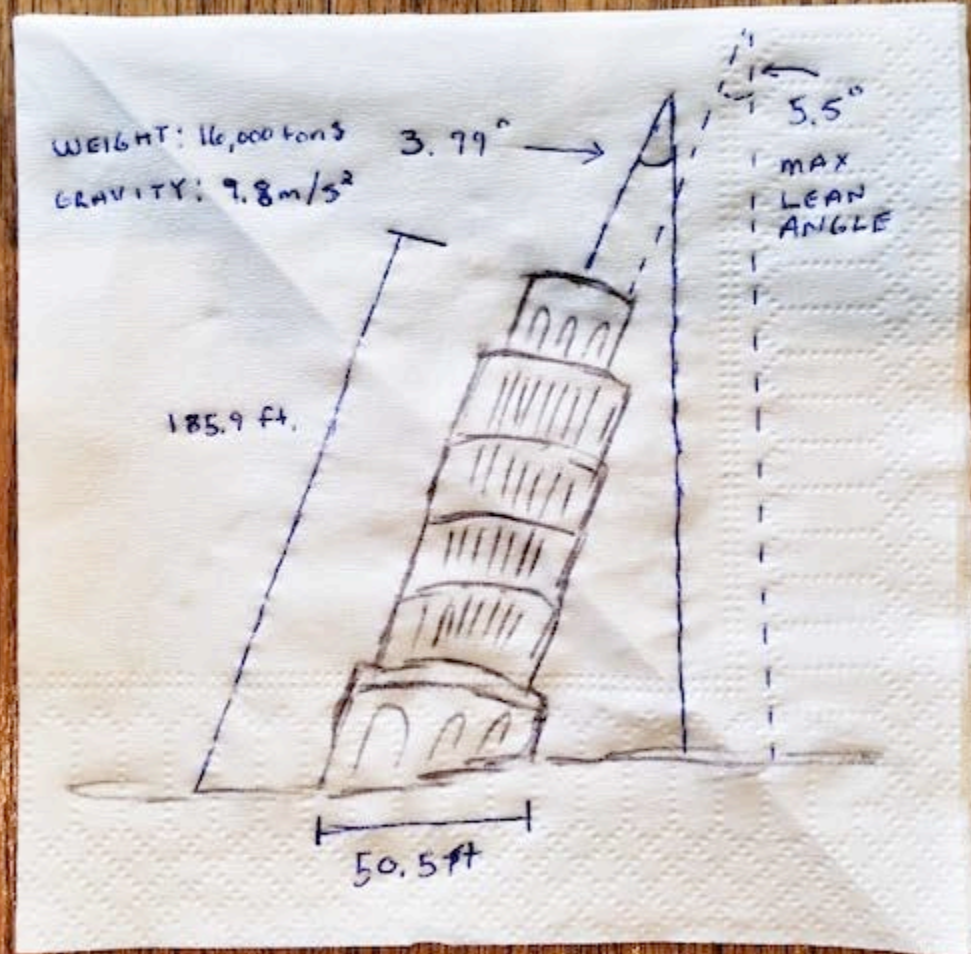 WEIGHT: 16,000 tons
GRAVITY: 9.8m/s²
3.99°
5.5°
MAX
LEAN
ANGLE
185.9 ft.
50.5 ft